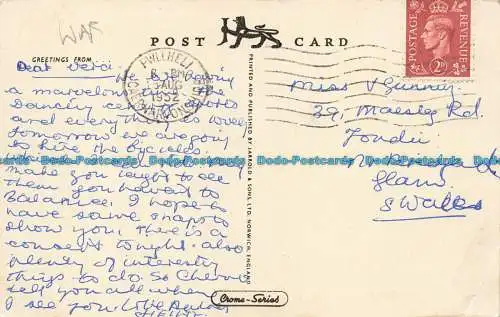 WAR
POST CARD
GREETINGS FROM
PWLLHELI
6 PM
AUG
1952
CAERNARVONSHIRE
POSTAGE REVENUE
2D
Dear
having
a marvelous time
Dancing
and everything is lovely
Tomorrow we are going
to hire the bycicles
make you laugh to see
them you have to
Balance. I hope to
have some snaps to
show you, there is a
concert tonight. also
plenty of interesting
things to do. So Cheerio
tell you all when
I see you love
Miss V
39, Maesteg Rd.
Tondu
Glam
S Wales
PRINTED AND PUBLISHED BY JARROLD & SONS, LTD. NORWICH, ENGLAND
Crome-Series
Dodo-Postcards Dodo-Postcards Dodo-Postcards Dodo-Postcards